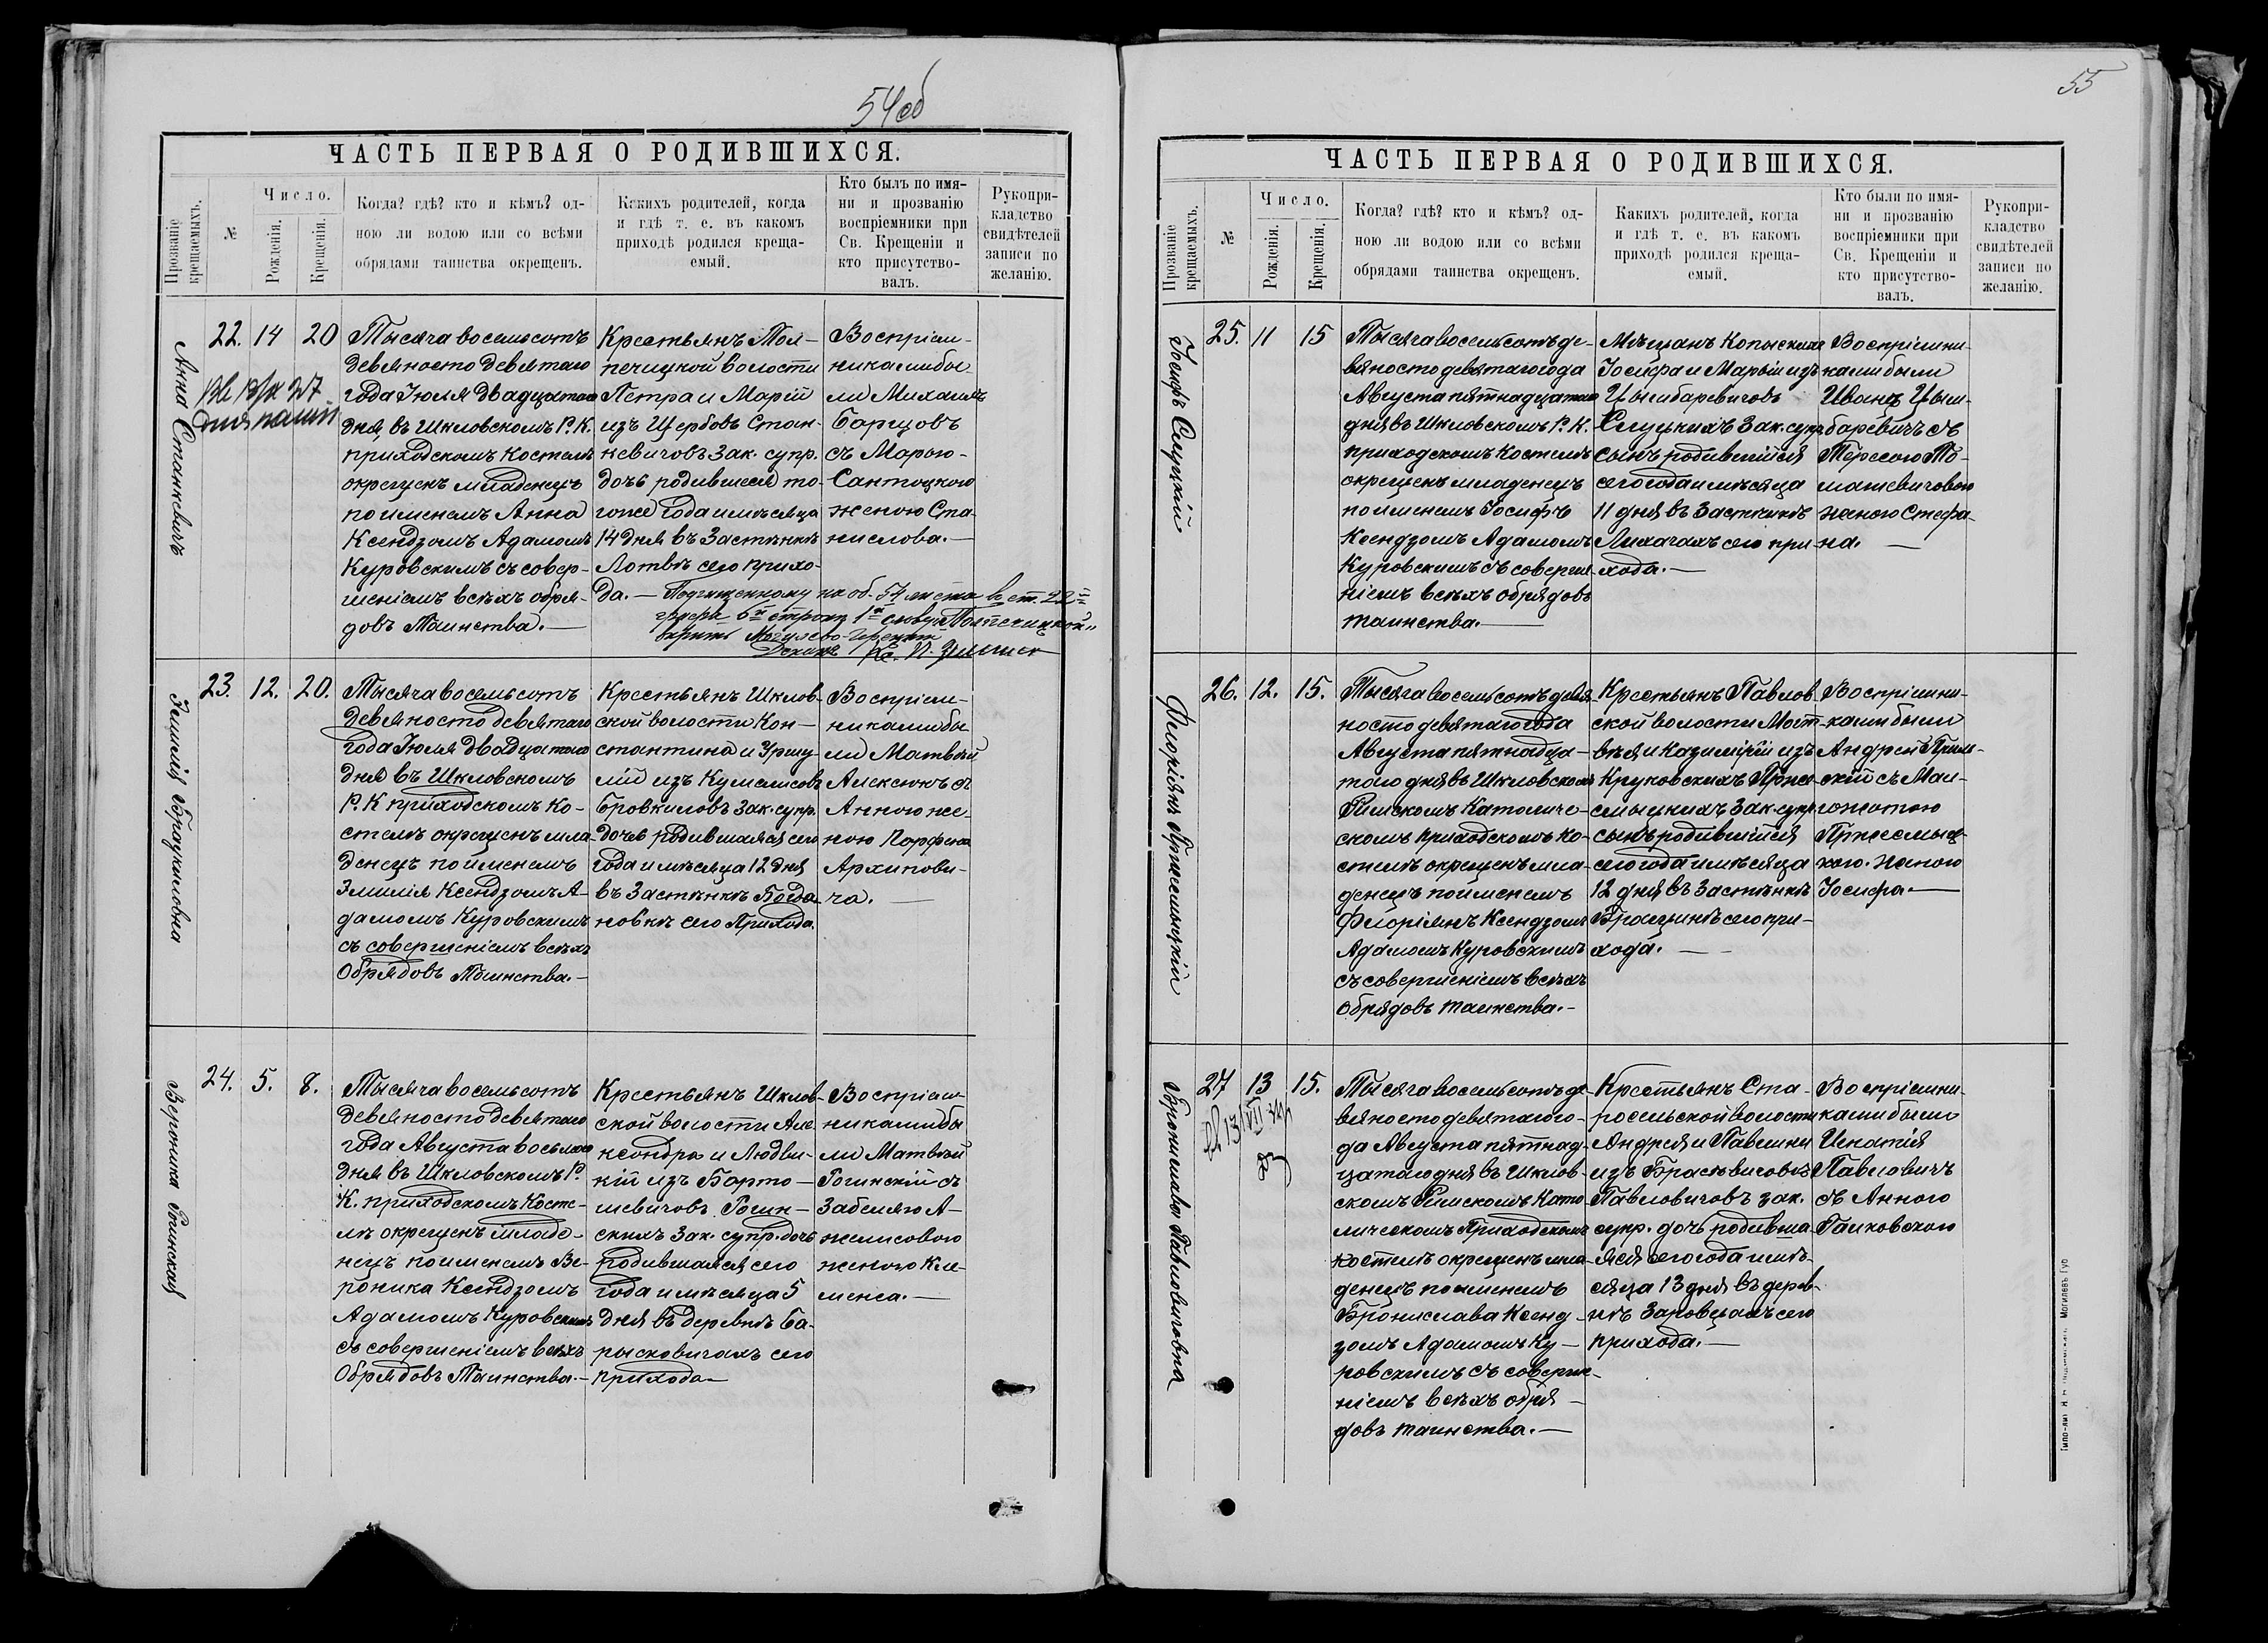 54об
ЧАСТЬ ПЕРВАЯ О РОДИВШИХСЯ.
Прозваніе крещаемыхъ.
№
Число.
Рожденія.
Крещенія.
Когда? гдѣ? кто и кѣмъ? од-
ною ли водою или со всѣми
обрядами таинства окрещенъ.
Какихъ родителей, когда
и гдѣ т. е. въ какомъ
приходѣ родился креща-
емый.
Кто былъ по имя-
ни и прозванію
воспріемники при
Св. Крещеніи и
кто присутство-
валъ.
Рукопри-
кладство
свидѣтелей
записи по
желанію.
Анна Станкевичъ
22. 14 20
Тысяча восемьсотъ
девяносто девятаго
года Іюля двадцатаго
дня, въ Шкловскомъ Р. К.
приходскомъ Костелѣ
окрещенъ младенецъ
по именемъ Анна
Ксендзомъ Адамомъ
Куровскимъ съ совер-
шеніемъ всѣхъ обря-
довъ Таинства.—
Крестьянъ
волости
Петра и Маріи
изъ Щербовъ Стан-
кевичовъ зак. супр.
дочь родившеся то-
гоже года и мѣсяца
14 дня въ Застѣнкѣ
Лотвѣ сего прихо-
да.—
Воспріем-
никами бы
ли Михаилъ
Барщовъ
съ Марьею
Сантоцкою
женою Ста-
нислова.—
на об. 54 листа въ ст. 22
строки 1 слову
Эмилія Броукиловна
23. 12. 20.
Тысяча восемьсотъ
девяносто девятаго
года Іюля двадцатаго
дня въ Шкловскомъ
Р. К приходскомъ Ко-
стелѣ окрещенъ мла-
денецъ по именемъ
Эмилія Ксендзомъ А-
дамомъ Куровскимъ
съ совершеніемъ всѣхъ
Обрядовъ Таинства.—
Крестьянъ Шклов-
ской волости Кон-
стантина и Уршу-
ліи изъ
Бровкиловъ зак. супр.
дочь родившаяся сего
года и мѣсяца 12 дня
въ Застѣнкѣ Богда-
новкѣ сего Прихода.
Воспріем-
никами бы
ли Матвѣй
Алексюкъ съ
Анною же-
ною Порфена
Архипови-
ча.—
Вероника Рогинская
24. 5. 8.
Тысяча восемьсотъ
девяносто девятаго
года Августа восьмого
дня въ Шкловскомъ Р.
К. приходскомъ Косте-
лѣ окрещенъ младе-
нецъ по именемъ Ве-
роника Ксендзомъ
Адамомъ Куровскимъ
съ совершеніемъ всѣхъ
Обрядовъ Таинства.—
Крестьянъ Шклов-
ской волости Але-
ксандра и Людви-
кіи изъ Барто-
шевичовъ Рогин-
скихъ зак. супр. дочь
родившаяся сего
года и мѣсяца 5
дня въ деревнѣ Ба-
рысковичахъ сего
прихода—
Воспріем-
никами бы
ли Матвѣй
Рогинскій съ
женою Кле-
менса.—
55
ЧАСТЬ ПЕРВАЯ О РОДИВШИХСЯ.
Прозваніе крещаемыхъ.
№
Число.
Рожденія.
Крещенія.
Когда? гдѣ? кто и кѣмъ? од-
ною ли водою или со всѣми
обрядами таинства окрещенъ.
Какихъ родителей, когда
и гдѣ т. е. въ какомъ
приходѣ родился креща-
емый.
Кто были по имя-
ни и прозванію
воспріемники при
Св. Крещеніи и
кто присутство-
валъ.
Рукопри-
кладство
свидѣтелей
записи по
желанію.
Іосифъ Слуцкій
25. 11 15
Тысяча восемьсотъ де-
вяносто девятаго года
Августа пятнадцатаго
дня въ Шкловскомъ Р. К.
приходскомъ Костелѣ
окрещенъ младенецъ
по именемъ Іосифъ
Ксендзомъ Адамомъ
Куровскимъ съ соверше-
ніемъ всѣхъ обрядовъ
таинства.—
Мѣщанъ Копыскихъ
Іосифа и Маріи изъ
Цымбаревичовъ
Слуцкихъ зак. супр.
сынъ родившійся
сего года и мѣсяца
11 дня въ Застѣнкѣ
Лихачахъ сего при-
хода.—
Воспріемни-
ками были
Иванъ Цым-
баревичъ съ
Тересою То-
машевичовою
женою Стефа-
на.—
Флоріянъ Пржесмыцкій
26. 12. 15.
Тысяча восемьсотъ девя-
носто девятаго года
Августа пятнадца-
таго дня въ Шкловскомъ
Римскомъ Католиче-
скомъ приходскомъ Ко-
стелѣ окрещенъ мла-
денецъ по именемъ
Флоріянъ Ксендзомъ
Адамомъ Куровскимъ
съ совершеніемъ всѣхъ
Обрядовъ таинства.—
Крестьянъ Павлов
ской волости Мат-
вѣя и Казиміріи изъ
Круковскихъ Прже-
смыцкихъ зак. супр.
сынъ родившійся
сего года и мѣсяца
12 дня въ Застѣнкѣ
сего при-
хода.—
Воспріемни-
ками были
Андрей
съ Мал-
гожатою
Пржесмыц-
кою женою
Іосифа.—
Бронислава Павловичовна
27 13 15.
Тысяча восемьсотъ де-
вяносто девятаго го-
да Августа пятнад-
цатаго дня въ Шклов-
скомъ Римскомъ Като-
лическомъ Приходскомъ
костелѣ окрещенъ мла-
денецъ по именемъ
Бронислава Ксенд-
зомъ Адамомъ Ку-
ровскимъ съ соверше-
ніемъ всѣхъ обря-
довъ таинства.—
Крестьянъ Ста-
росельской волости
Андрея и Павлины
изъ
Павловичовъ зак.
супр. дочь родивша-
яся сего года и мѣ-
сяца 13 дня въ дерев-
нѣ Заровцахъ сего
прихода.—
Воспріемни-
ками были
Игнатія
Павловичъ
съ Анною